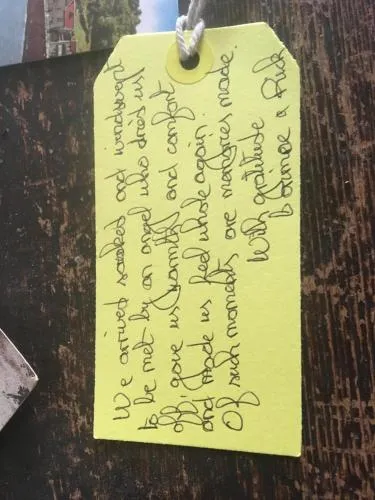 We arrived soaked and windswept
to be met by an angel who dried us
off, gave us warmth and comfort
and made us feel whole again.
Of such moments are memories made.
With gratitude